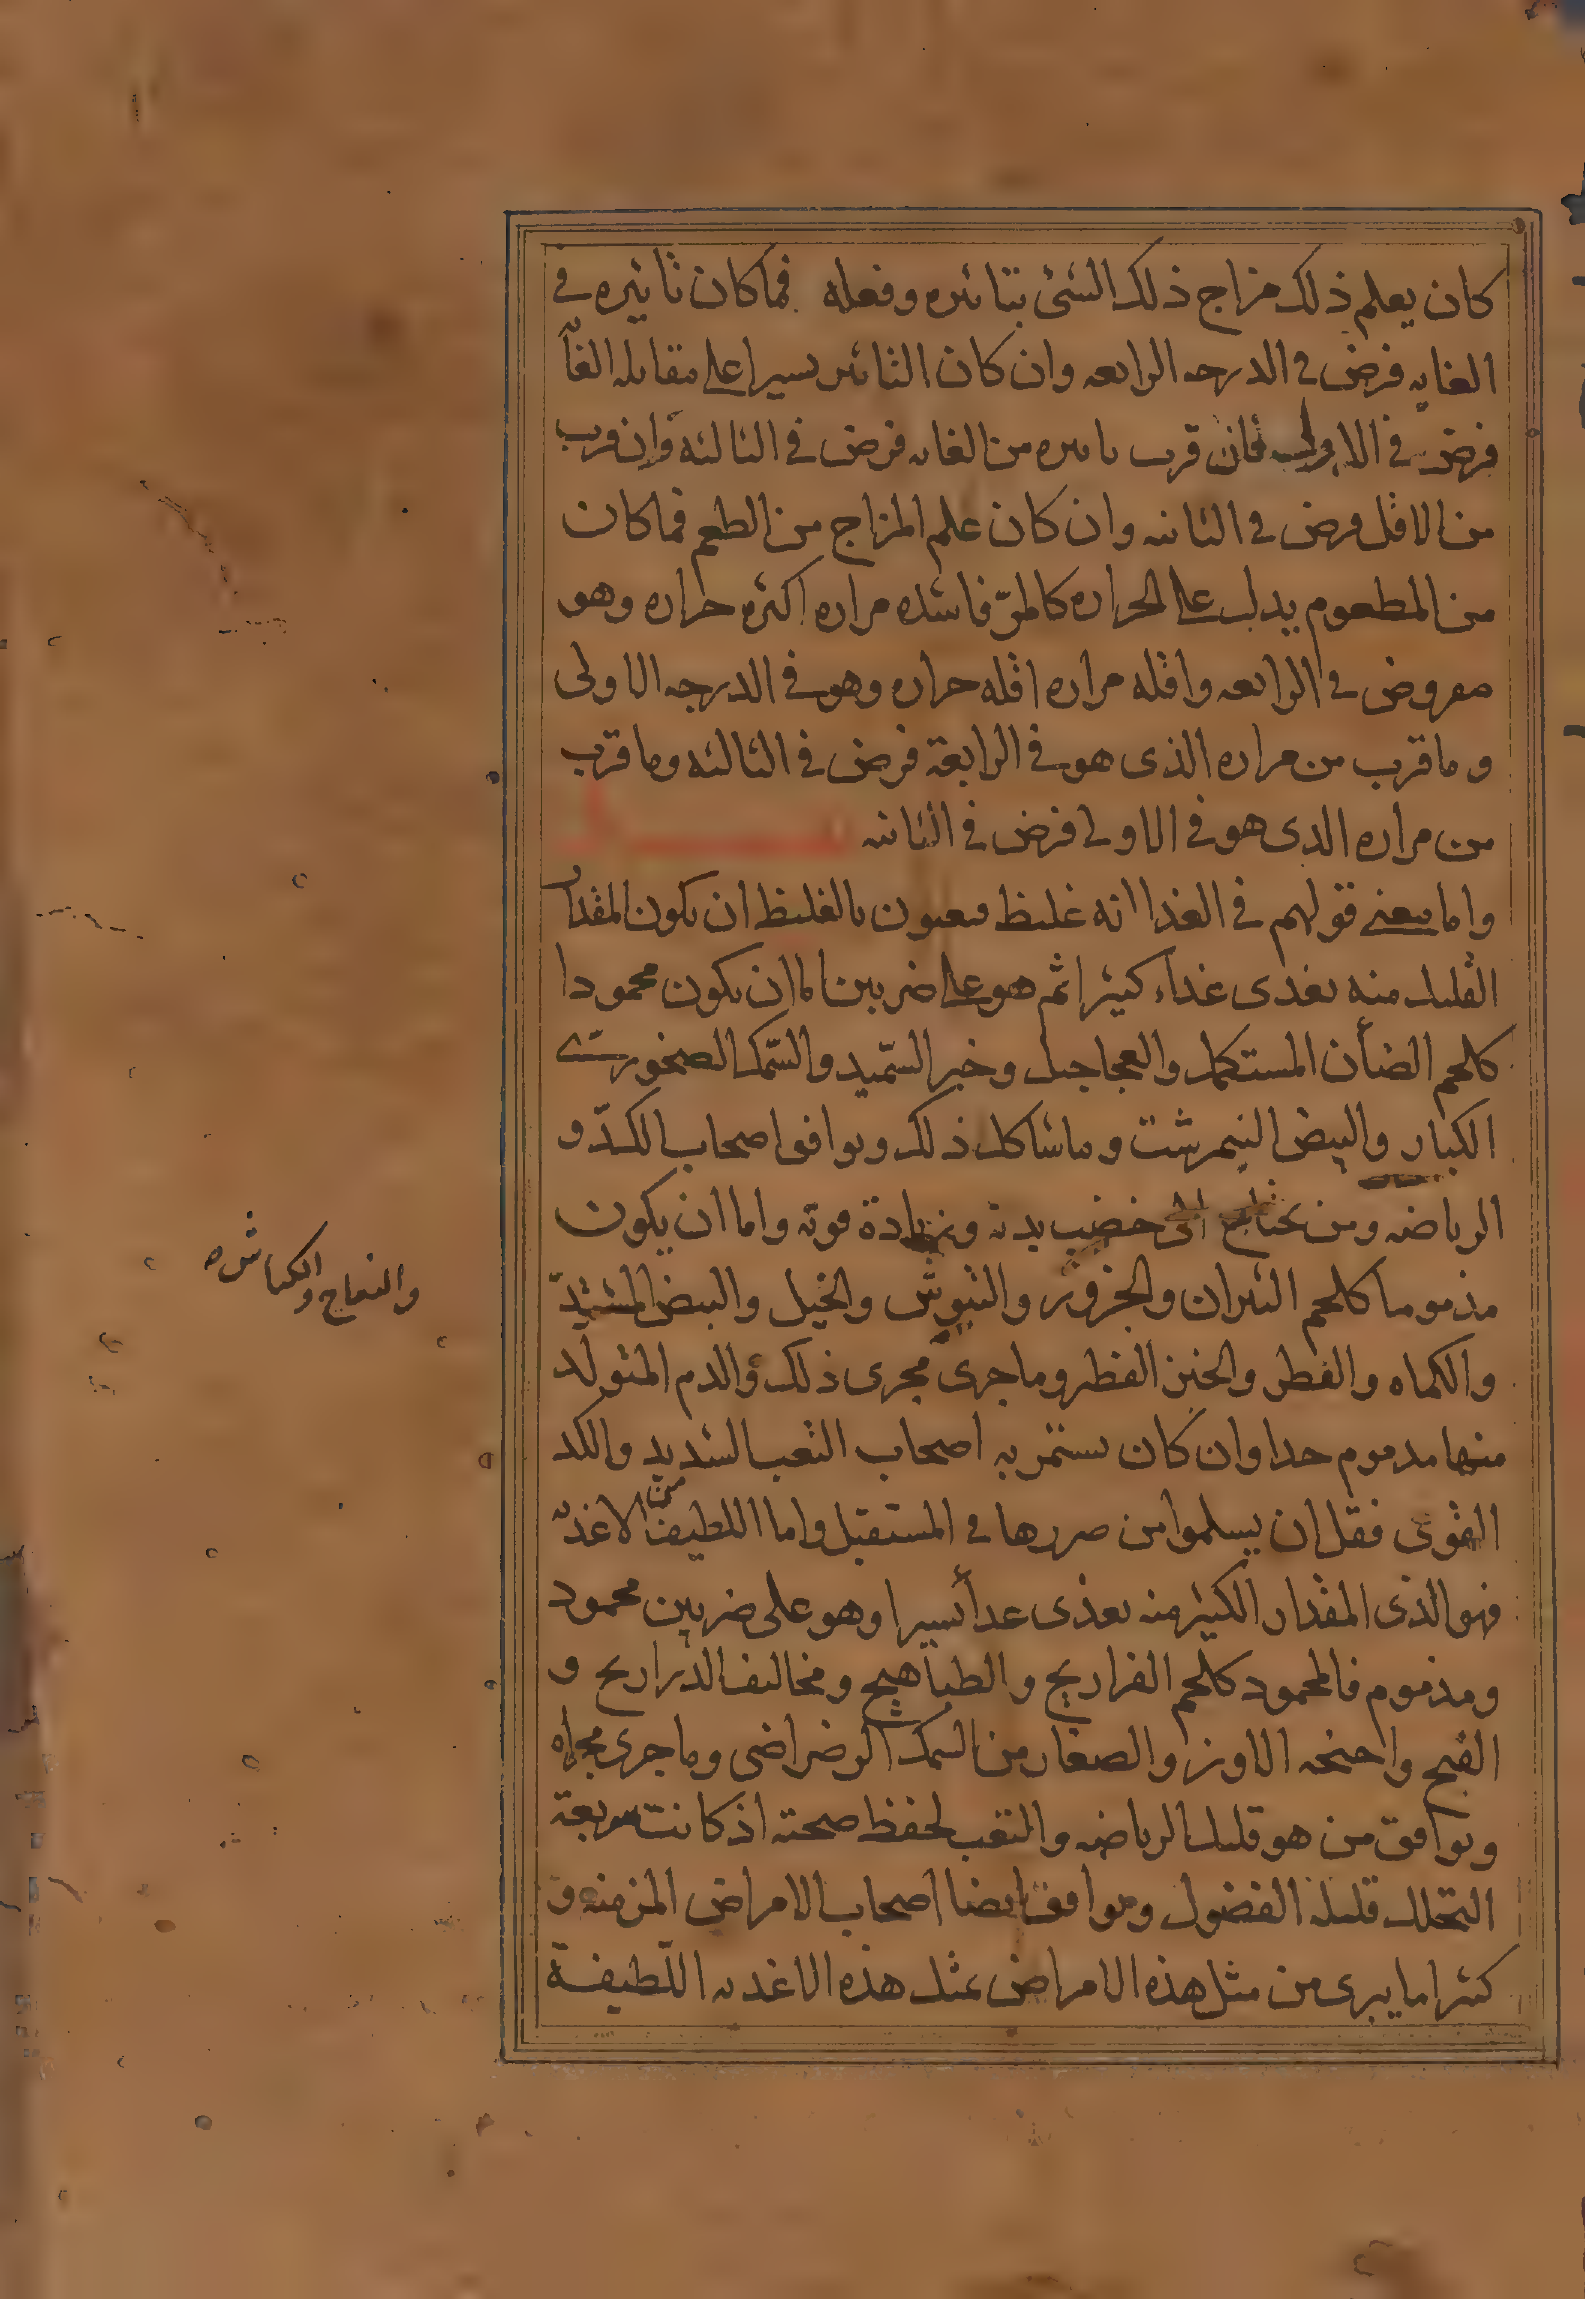 كان يعلم ذلك مزاج ذلك الشئ بتاثيره وفعله فما كان تاثيره في
الغايه فرض في الدرجه الرابعه وان كان التاثير يسيرا على مقابله الغا
فرض في الاولى فان قرب تاثيره من الغايه فرض في الثالثه وان قرب
من الاقل فرض في الثانيه وان كان علم المزاج من الطعم فما كان
من المطعوم يدل على الحراره كالمرّ فاشده مراره اكثره حراره وهو
مفروض في الرابعه واقله مراره اقله حراره وهو في الدرجه الاولى
وما قرب من مراره الذى هو في الرابعة فرض في الثالثه وما قرب
من مراره الدى هو في الاولى فرض في الثانيه
واما معنى قولهم في الغذا انه غليظ فيعنون بالغليظ ان يكون المقدار
القليل منه يغذى غذاء كثيرا ثم هو على ضربين اما ان يكون محمودا
كلحم الضأن المستكمل والعجاجيل وخبز السّميد والسّمك الصخورى
الكبار والبيض النيمرشت وما شاكل ذلك ويوافق اصحاب الكدّ و
الرياضه ومن يحتاج الى خصب بدنه وزيادة قوته واما ان يكون
مذموما كلحم الثيران والجزور والتيوس والخيل والبيض المشتدّ
والكماه والفطر والخبز الفطير وما جرى مجرى ذلك والدم المتولد
منها مذموم جدا وان كان يستمر به اصحاب التعب الشديد والكد
القوى فقل ان يسلموا من ضررها في المستقبل واما اللطيف من الاغذيه
فهو الذى المقدار الكثير منه يغذى غدأ يسيرا وهو على ضربين محمود
ومذموم فالمحمود كلحم الفراريج والطياهيج ومخاليف الدراريج و
القبج واجنحه الاوز والصغار من السمك الرضراضى وما جرى مجراه
ويوافق من هو قليل الرياضه والتعب لحفظ صحته اذ كانت سريعة
التحلل قليله الفضول ويوافق ايضا اصحاب الامراض المزمنه و
كثيرا ما يبرى من مثل هذه الامراض بمثل هذه الاغذيه اللّطيفة
والنعاج والكباش